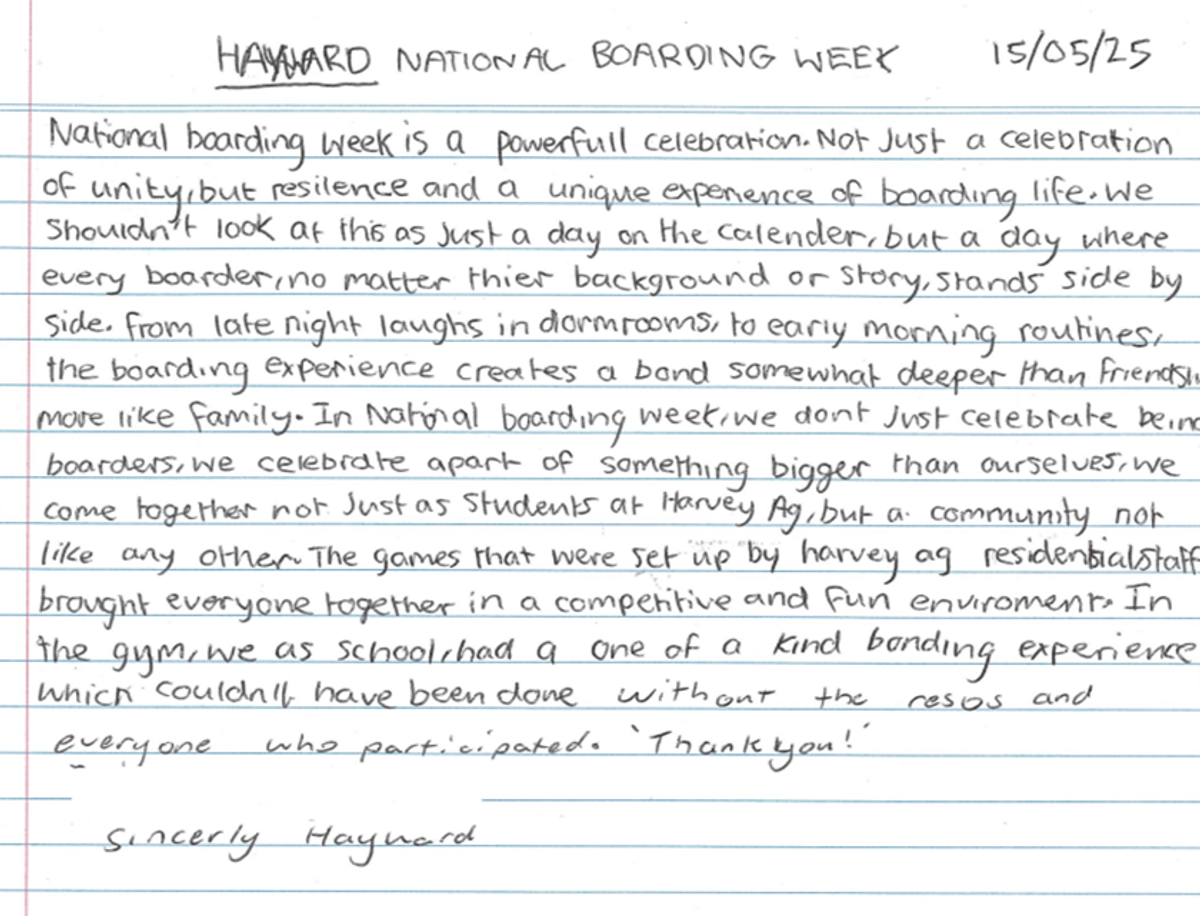 HAYWARD NATIONAL BOARDING WEEK 15/05/25
National boarding week is a powerfull celebration. Not Just a celebration
of unity, but resilence and a unique experience of boarding life. We
shouldn't look at this as Just a day on the calender, but a day where
every boarder, no matter thier background or story, stands side by
side. From late night laughs in dormrooms, to early morning routines,
the boarding experience creates a bond somewhat deeper than friendshi
more like family. In National boarding week, we dont Just celebrate being
boarders, we celebrate apart of something bigger than ourselves, we
come together not Just as students at Harvey Ag, but a community not
like any other. The games that were set up by harvey ag residential staff
brought everyone together in a competitive and fun enviroment. In
the gym, we as school, had a one of a kind bonding experience
which couldn't have been done without the resos and
everyone who participated. 'Thank you!'
Sincerly Hayward